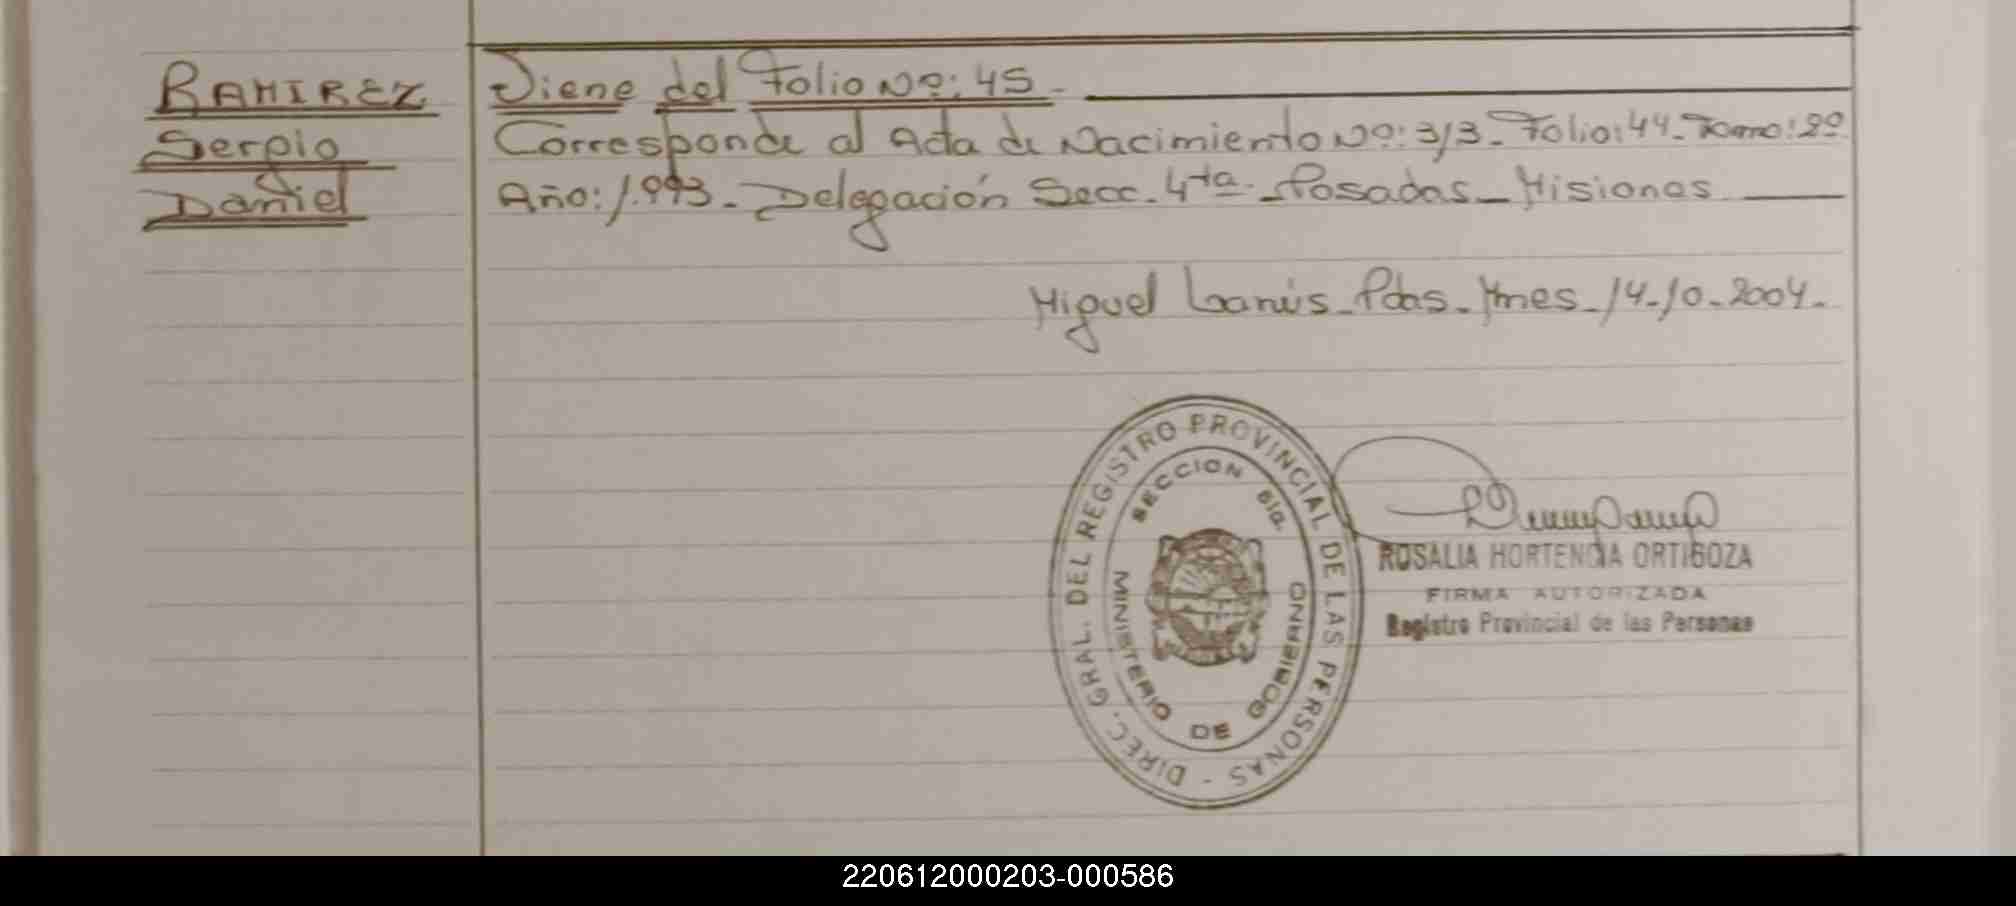 RAMIREZ
Sergio
Daniel
Viene del Folio Nº: 45.
Corresponde al Acta de Nacimiento Nº: 313- Folio: 44- Tomo: 2º
Año: 1.993- Delegación Secc. 4ta.- Posadas- Misiones
Miguel Lanús- Pdas- Mnes- 14-10-2004-
DIREC. GRAL. DEL REGISTRO PROVINCIAL DE LAS PERSONAS -
SECCION 6ta.
MINISTERIO DE GOBIERNO
ROSALIA HORTENCIA ORTIGOZA
FIRMA AUTORIZADA
Registro Provincial de las Personas
220612000203-000586